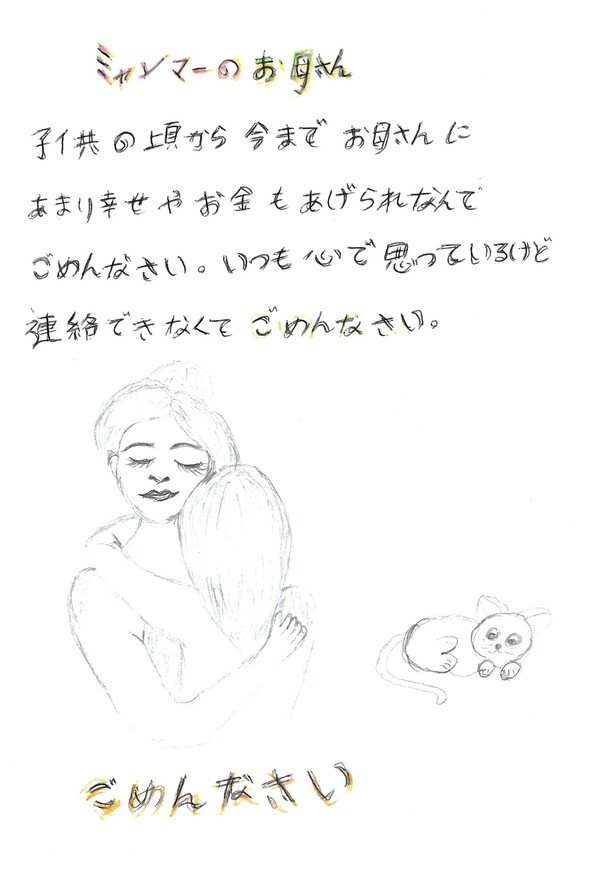 ミャンマーのお母さん
子供の頃から今までお母さんに
あまり幸せやお金もあげられなんで
ごめんなさい。いつも心で思っているけど
連絡できなくてごめんなさい。
ごめんなさい